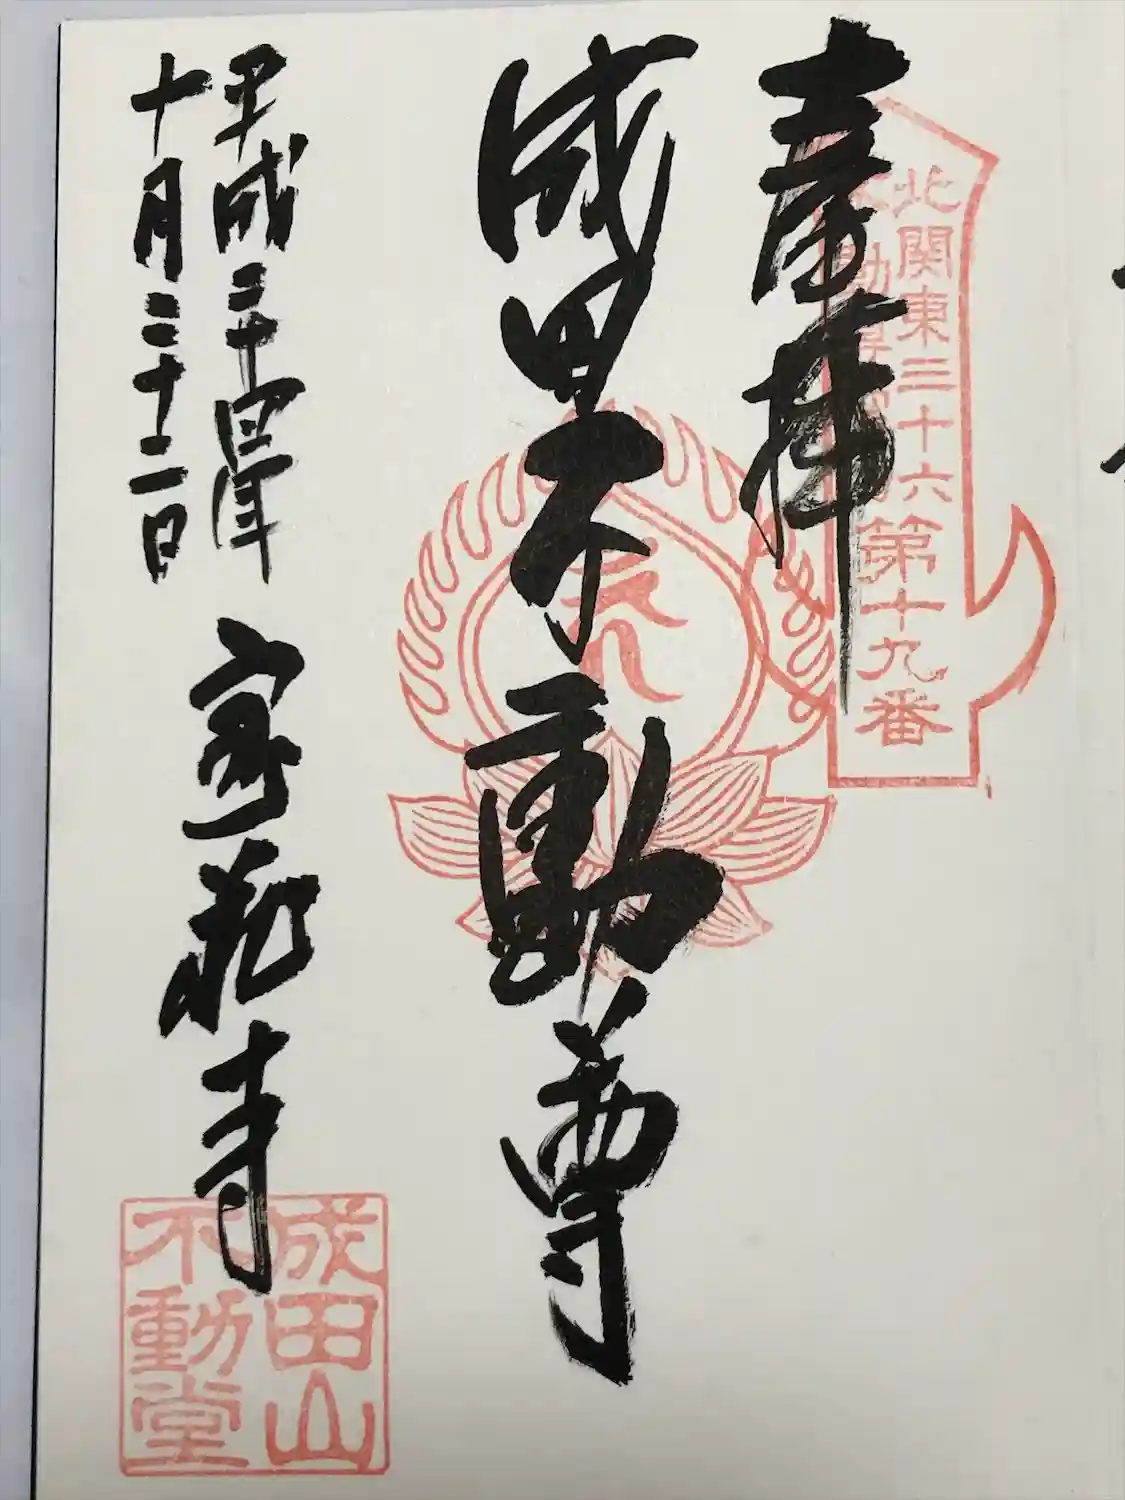 奉拝
北関東三十六
不動尊
第十九番
成田不動尊
平成三十年
十月三十二日
寺
成田山
不動堂